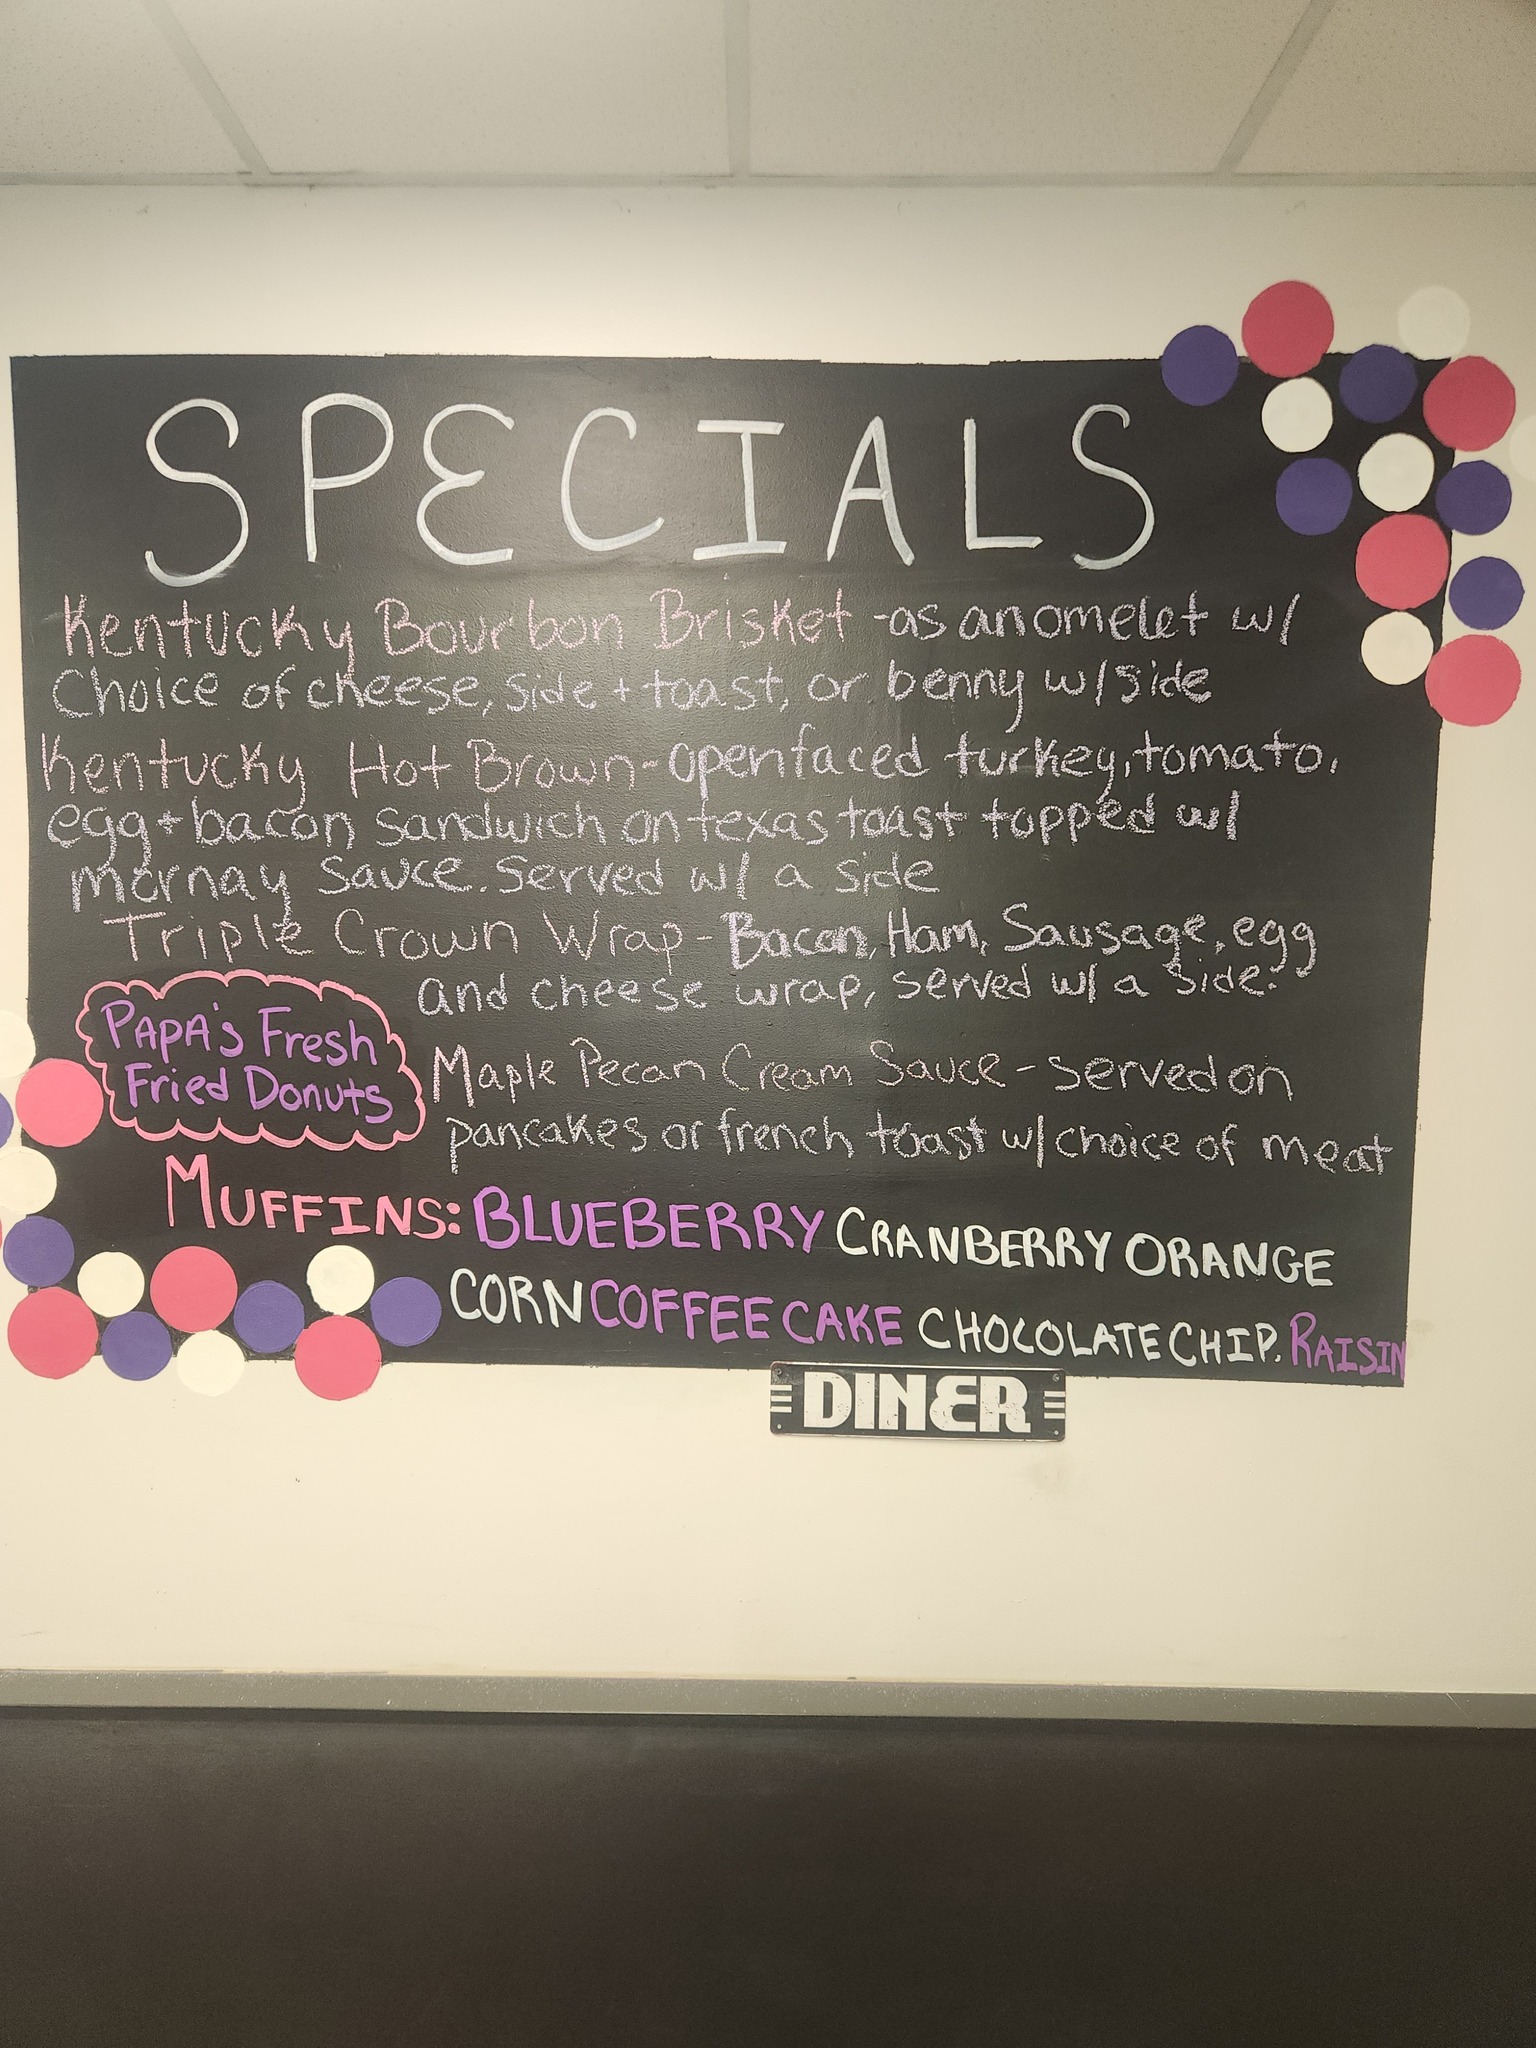 SPECIALS
Kentucky Bourbon Brisket - as an omelet w/
Choice of cheese, side + toast, or benny w/ side
Kentucky Hot Brown - openfaced turkey, tomato,
egg + bacon sandwich on texas toast topped w/
mornay sauce. served w/ a side
Triple Crown Wrap - Bacon, Ham, Sausage, egg
and cheese wrap, served w/ a side.
PAPA's Fresh
Fried Donuts
Maple Pecan Cream Sauce - served on
pancakes or french toast w/ choice of meat
MUFFINS: BLUEBERRY CRANBERRY ORANGE
CORN COFFEE CAKE CHOCOLATE CHIP. RAISIN
DINER